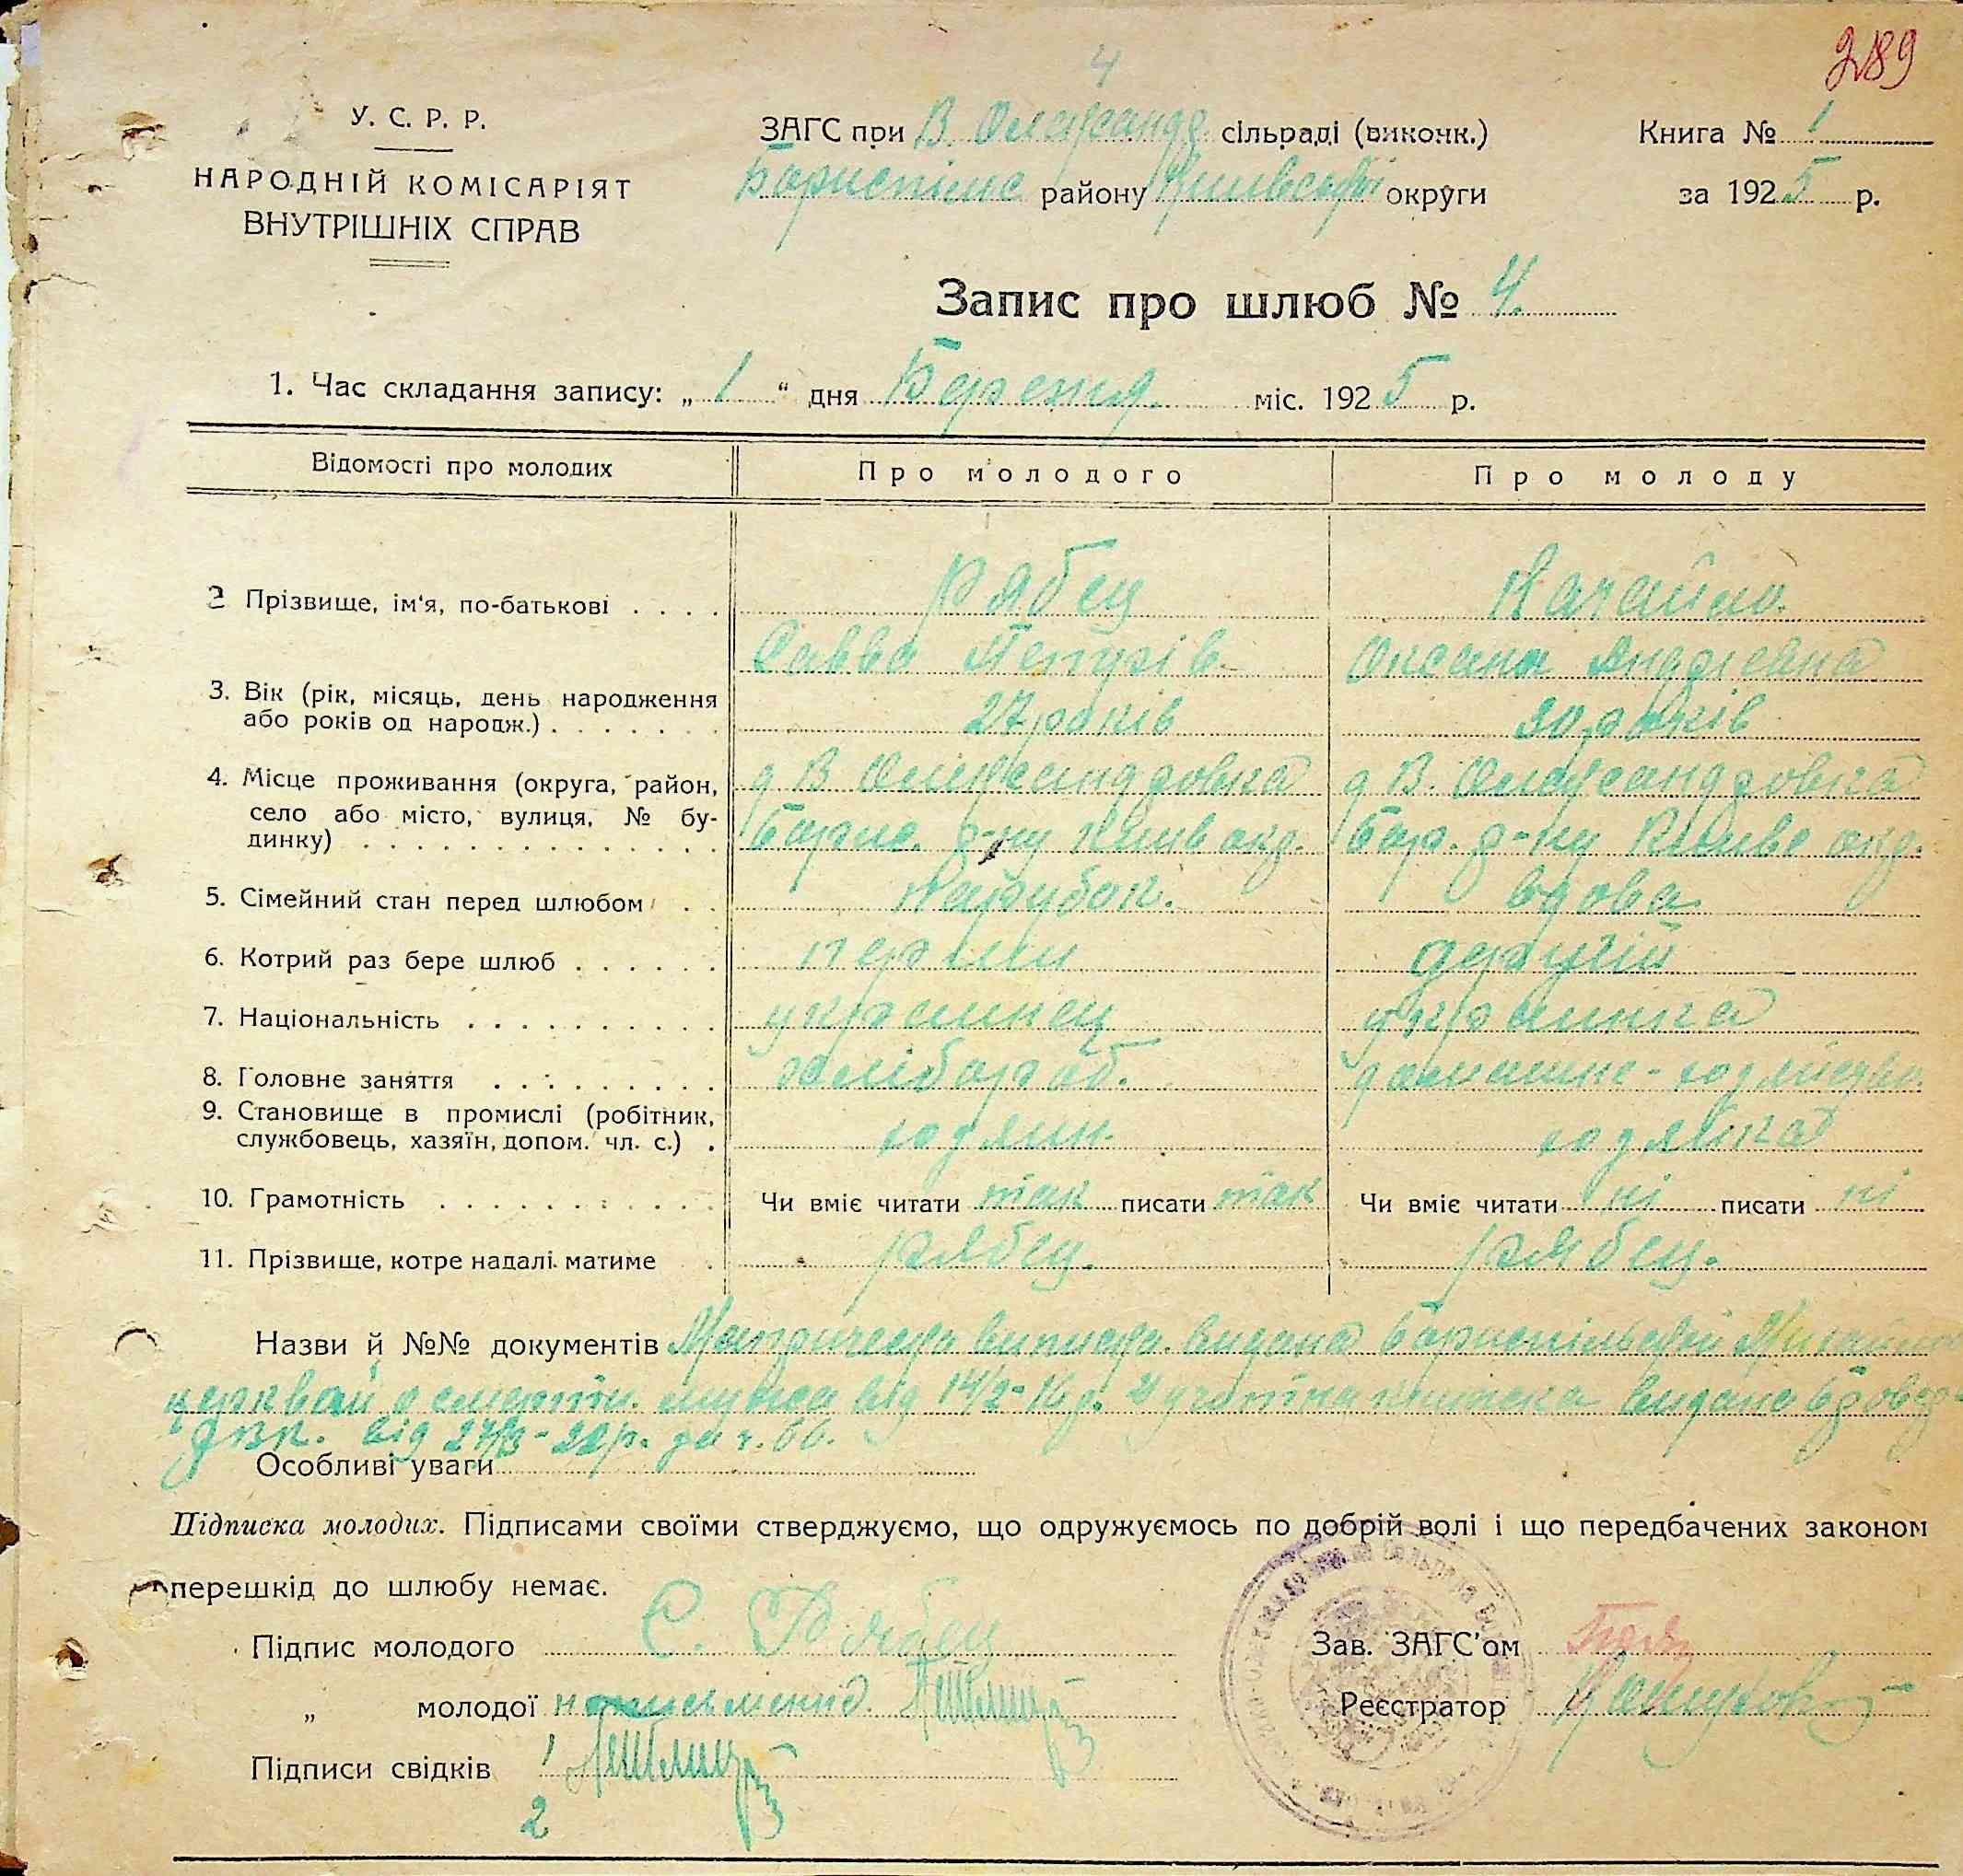 289
4
У. С. Р. Р.
НАРОДНІЙ КОМІСАРІЯТ
ВНУТРІШНІХ СПРАВ
ЗАГС при В. Олександ. сільраді (виконк.)
Бориспілс району Київської округи
Книга № 1
за 1925 р.
Запис про шлюб № 4.
1. Час складання запису: „ 1 “ дня Березня міс. 1925 р.
Відомості про молодих
Про молодого
Про молоду
2 Прізвище, ім'я, по-батькові . . . .
Рябец
Савва Петрів
Качайло
Оксана Андрієвна
3. Вік (рік, місяць, день народження
або років од народж.) . . . . . . .
27 років
30 років
4. Місце проживання (округа, район,
село або місто, вулиця, № бу-
динку) . . . . . . . . . . . . . . .
д В Олександровка
Борис. р-ну Київ окр.
д В. Олександровка
Бор. р-ну Київс окр.
5. Сімейний стан перед шлюбом . .
парубок.
вдова
6. Котрий раз бере шлюб . . . . . .
перши
другій
7. Національність . . . . . . . . . .
украинец
украинка
8. Головне заняття . . . . . . . . .
хлібороб.
домашне-
9. Становище в промислі (робітник,
службовець, хазяїн, допом. чл. с.) .
хозяин
хозяйка
10. Грамотність . . . . . . . . . . .
Чи вміє читати так писати так
Чи вміє читати ні писати ні
11. Прізвище, котре надалі матиме .
Рябец.
Рябец.
Назви й №№ документів видана Бориспільской
церквой о смерти мужа від 14/2-16р. видане
від
Особливі уваги
Підписка молодих. Підписами своїми стверджуємо, що одружуємось по добрій волі і що передбачених законом
перешкід до шлюбу немає.
Підпис молодого С. Рябец
„ молодої
Підписи свідків 1
2
Зав. ЗАГС'ом
Реєстратор